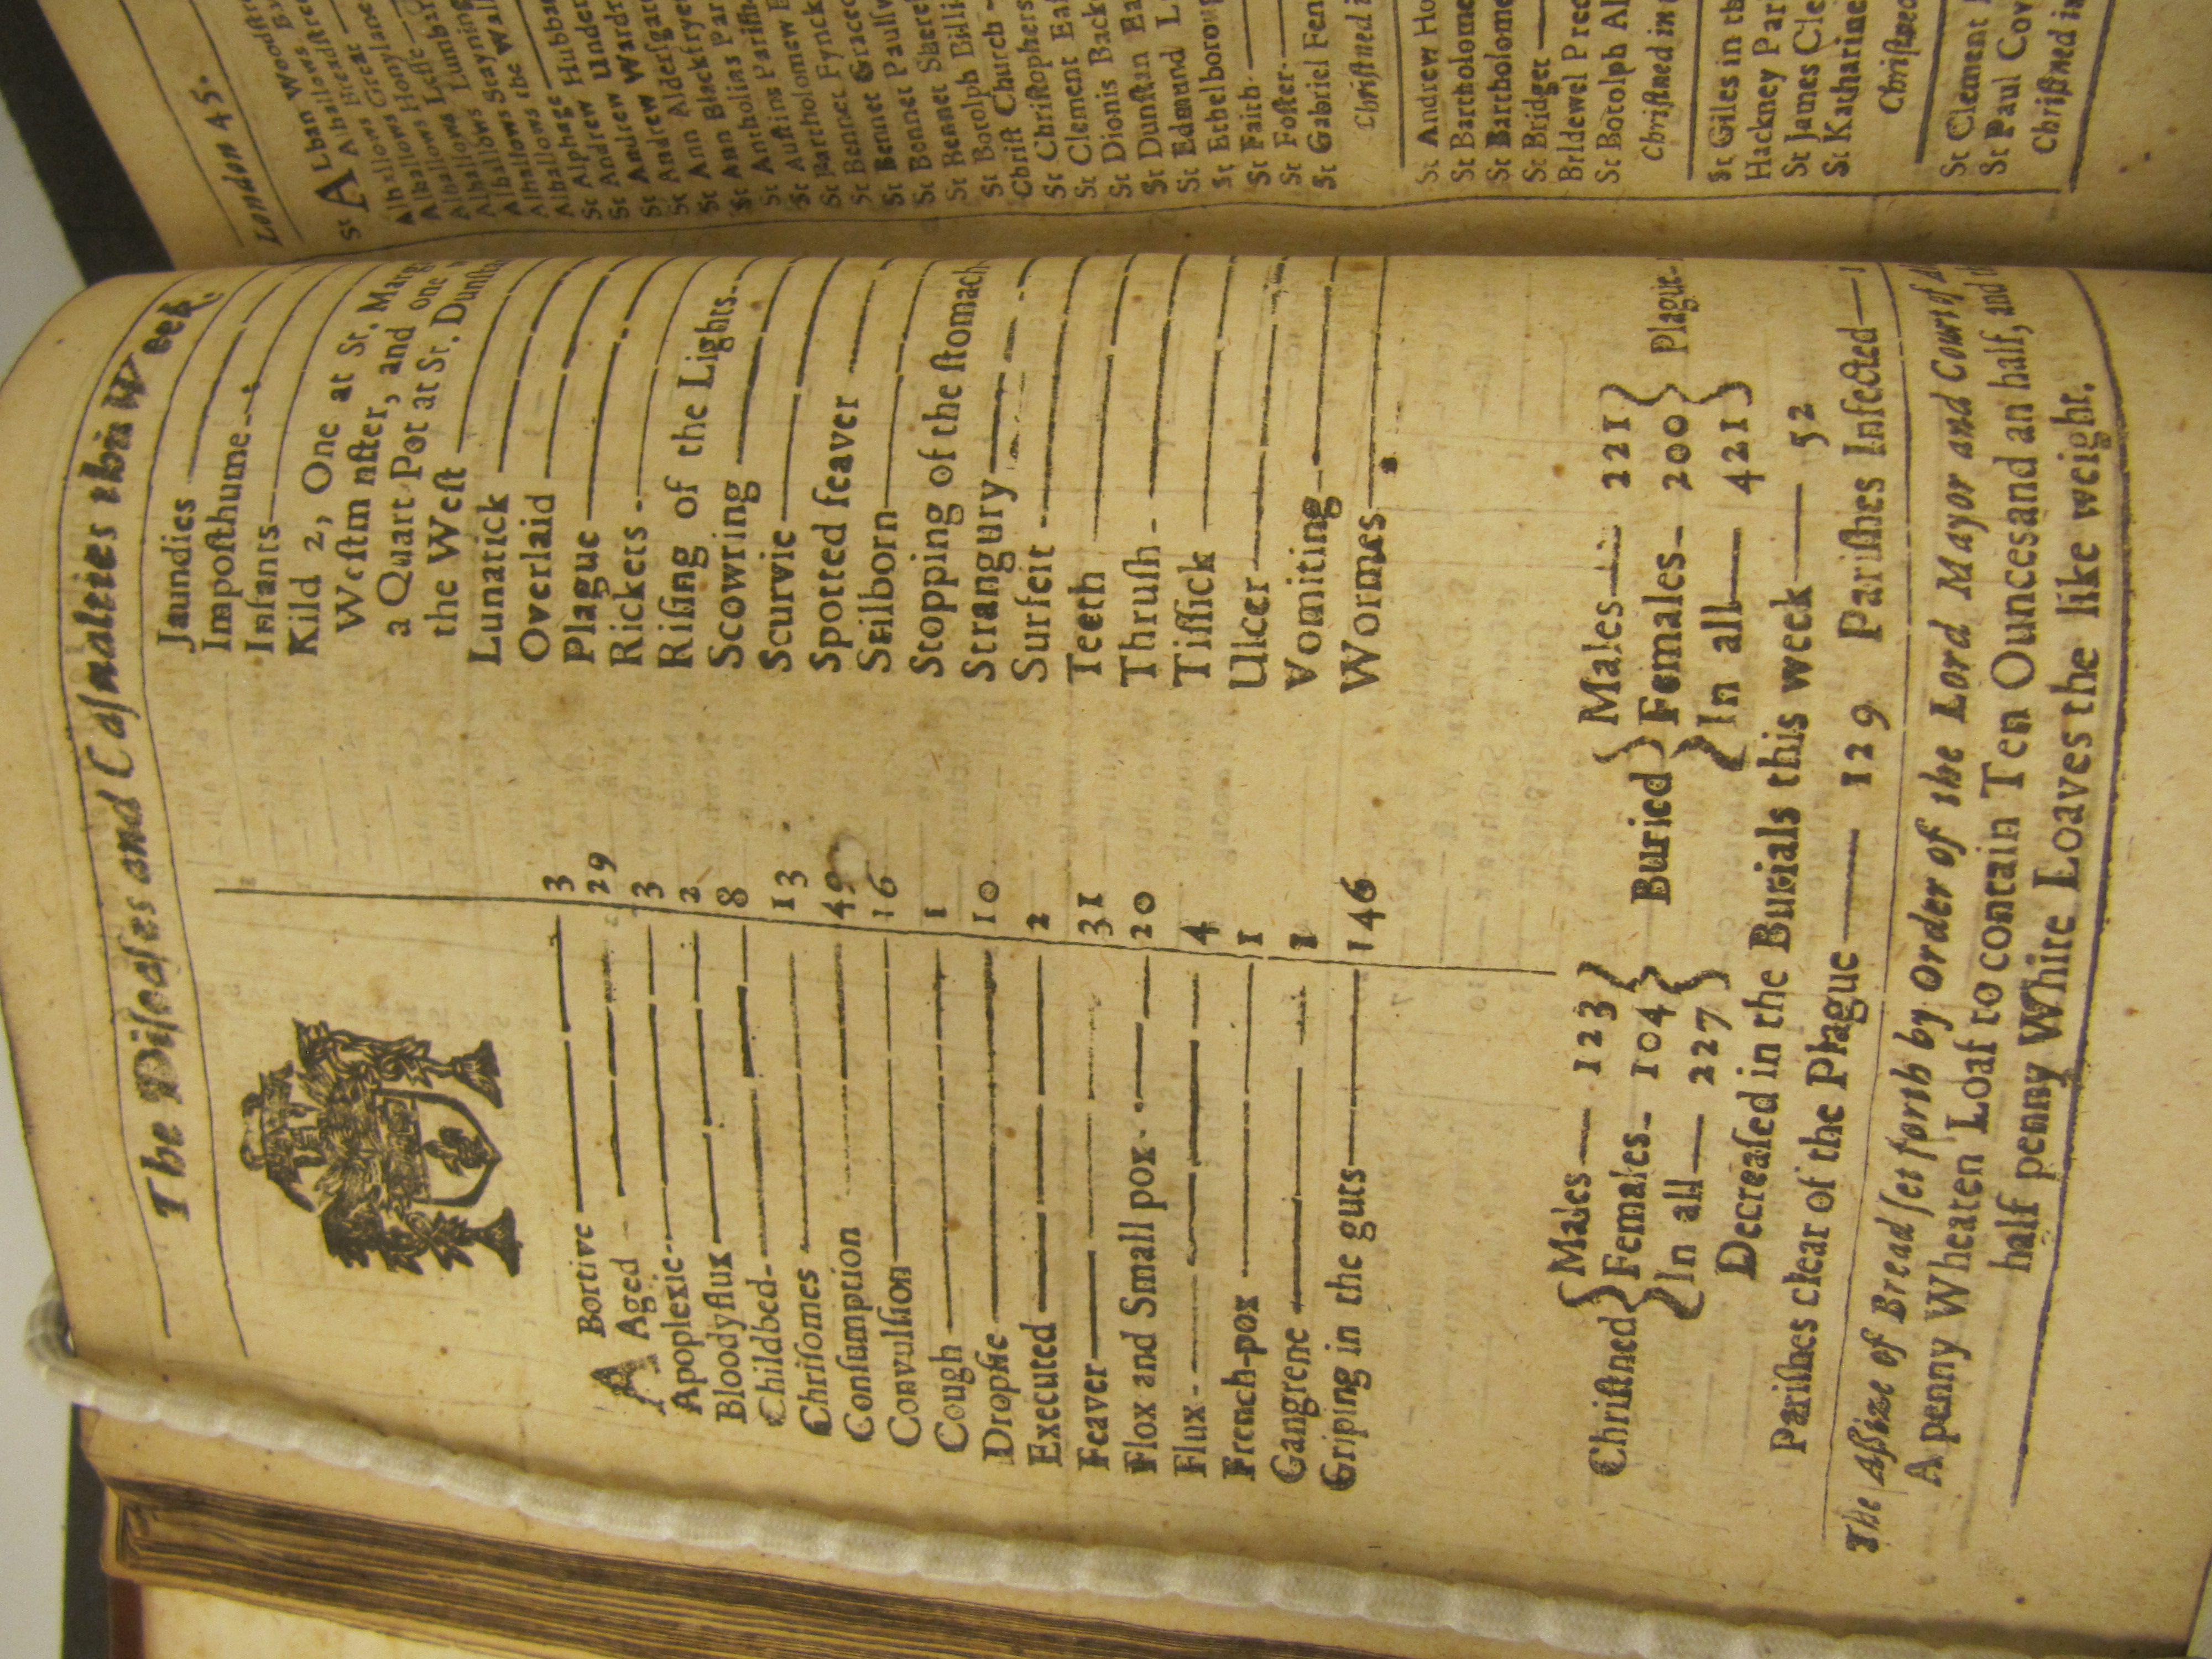 The Diſeaſes and Caſualties this Week.
Abortive 3
Aged 29
Apoplexie 3
Bloody flux 2
Childbed 8
Chriſomes 13
Conſumption 49
Convulſion 16
Cough 1
Dropſie 10
Executed 2
Feaver 31
Flox and Small pox 20
Flux 4
French-pox 1
Gangrene 1
Griping in the guts 146
Jaundies
Impoſthume
Infants
Kild 2, One at St. Marg
Weſtm nſter, and one
a Quart Pot at St. Dunſta
the Weſt
Lunatick
Overlaid
Plague
Rickets
Riſing of the Lights
Scowring
Scurvie
Spotted feaver
Stilborn
Stopping of the ſtomach
Strangury
Surfeit
Teeth
Thruſh
Tiſſick
Ulcer
Vomiting
Wormes
Chriſtned { Males 123 Females 104 In all 227 }
Buried { Males 221 Females 200 In all 421 } Plague
Decreaſed in the Burials this week 52
Pariſhes clear of the Plague 129 Pariſhes Infected 1
The Aſſize of Bread ſet forth by Order of the Lord Mayor and Court of
A penny Wheaten Loaf to contain Ten Ounces and an half, and
half penny White Loaves the like weight.
London 45.
St ALban Woodſtre
St Alhallows Breadſtre
Alhallows Great
Alhallows Honylane
Alhallows Leſſe
Alhallows Lumbar
Alhallows Stayning
Alhallows the Wall
St Alphage
St Andrew Hubba
St Andrew Under
St Andrew Wardr
St Ann Alderſga
St Ann Blackfrye
St Antholins Par
St Auſtins Pariſh
St Bartholomew E
St Bennet Fynck
St Bennet Gracec
St Bennet Paulſw
St Bennet Shereh
St Botolph Billi
Chriſt Church
St Chriſtophers
St Clement Eaſ
St Dionis Backc
St Dunſtan Ea
St Edmund L
St Ethelborou
St Faith
St Foſter
St Gabriel Fen
Chriſtned i
St Andrew Ho
St Bartholome
St Bartholome
St Bridget
Bridewel Prec
St Botolph Al
Chriſtned in
St Giles in th
Hackney Par
St James Cle
St Katharine
Chriſtned
St Clement
St Paul Cov
Chriſtned in